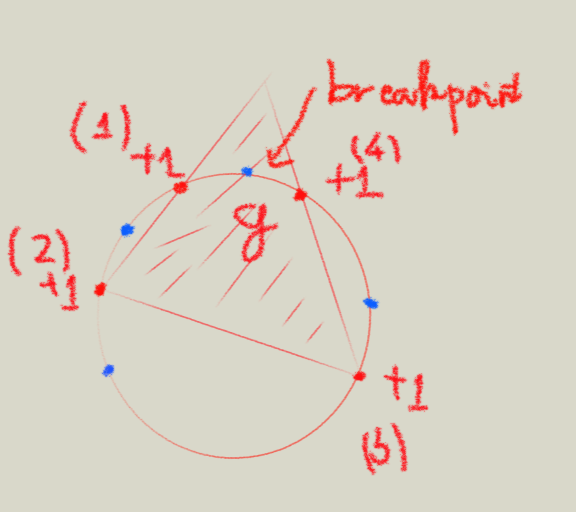 breakpoint
(1)
+1
(4)
+1
g
(2)
+1
+1
(5)